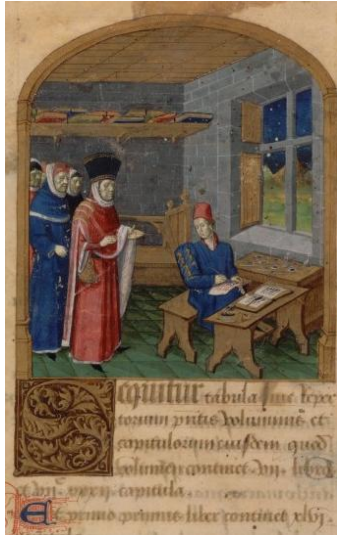 Sequitur tabula siue reper
torium pntis voluminis et
capitulorum eiusdem quod
volumen continet vii. libros
xxxii capitula.
Et primo primus liber continet xlvi.